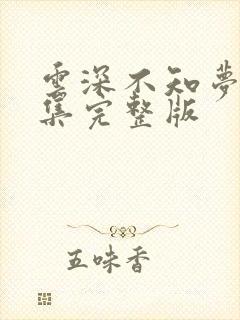 雲深不知夢
集完整版
五味香